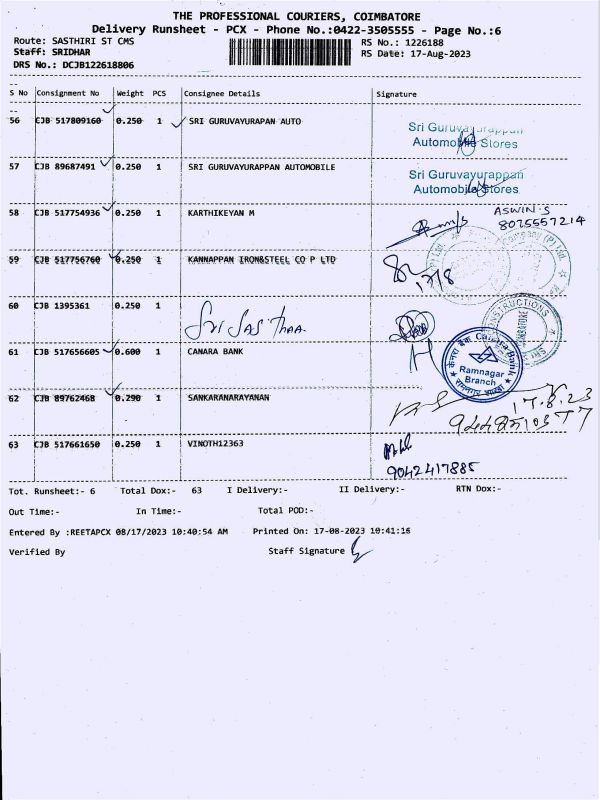 THE PROFESSIONAL COURIERS, COIMBATORE
Delivery Runsheet - PCX - Phone No.:0422-3505555 - Page No.:6
Route: SASTHIRI ST CMS RS No.: 1226188
Staff: SRIDHAR RS Date: 17-Aug-2023
DRS No.: DCJB122618806
S No Consignment No Weight PCS Consignee Details Signature
56 CJB 517809160 0.250 1 SRI GURUVAYURAPAN AUTO Sri Guruvayurappan
Automobile Stores
57 CJB 89687491 0.250 1 SRI GURUVAYURAPPAN AUTOMOBILE Sri Guruvayurappan
Automobile Stores
58 CJB 517754936 0.250 1 KARTHIKEYAN M ASWIN.S
8075557214
59 CJB 517756760 0.250 1 KANNAPPAN IRON&STEEL CO P LTD 17/8
60 CJB 1395361 0.250 1 Sri Sasthaa
CONSTRUCTIONS
COIMBATORE
61 CJB 517656605 0.600 1 CANARA BANK
केनरा बैंक Canara Bank
Ramnagar
Branch
62 CJB 89762468 0.290 1 SANKARANARAYANAN 17.8.23
63 CJB 517661650 0.250 1 VINOTH12363
9042417885
Tot. Runsheet:- 6 Total Dox:- 63 I Delivery:- II Delivery:- RTN Dox:-
Out Time:- In Time:- Total POD:-
Entered By :REETAPCX 08/17/2023 10:40:54 AM Printed On: 17-08-2023 10:41:16
Verified By Staff Signature